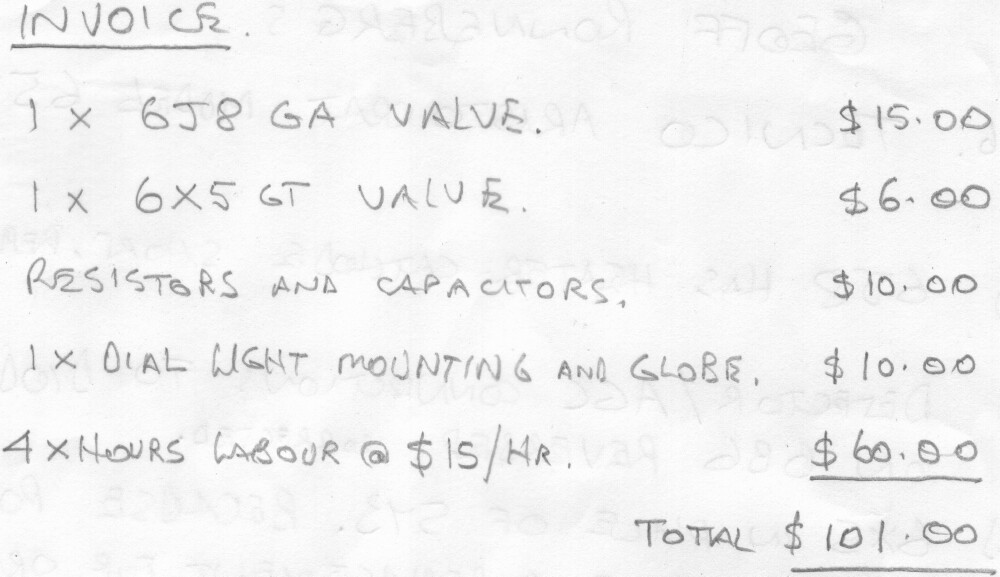 INVOICE.
1 x 6J8 GA VALVE. $15.00
1 x 6X5 GT VALVE. $6.00
RESISTORS AND CAPACITORS. $10.00
1 x DIAL LIGHT MOUNTING AND GLOBE. $10.00
4 x HOURS LABOUR @ $15/HR. $60.00
TOTAL $101.00